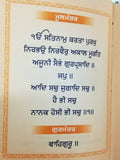 ਮੂਲਮੰਤਰ
ੴ ਸਤਿਨਾਮੁ ਕਰਤਾ ਪੁਰਖੁ
ਨਿਰਭਉ ਨਿਰਵੈਰੁ ਅਕਾਲ ਮੂਰਤਿ
ਅਜੂਨੀ ਸੈਭੰ ਗੁਰਪ੍ਰਸਾਦਿ॥
ਜਪੁ॥
ਆਦਿ ਸਚੁ ਜੁਗਾਦਿ ਸਚੁ॥
ਹੈ ਭੀ ਸਚੁ
ਨਾਨਕ ਹੋਸੀ ਭੀ ਸਚੁ॥੧॥
ਗੁਰਮੰਤਰ
ਵਾਹਿਗੁਰੂ॥